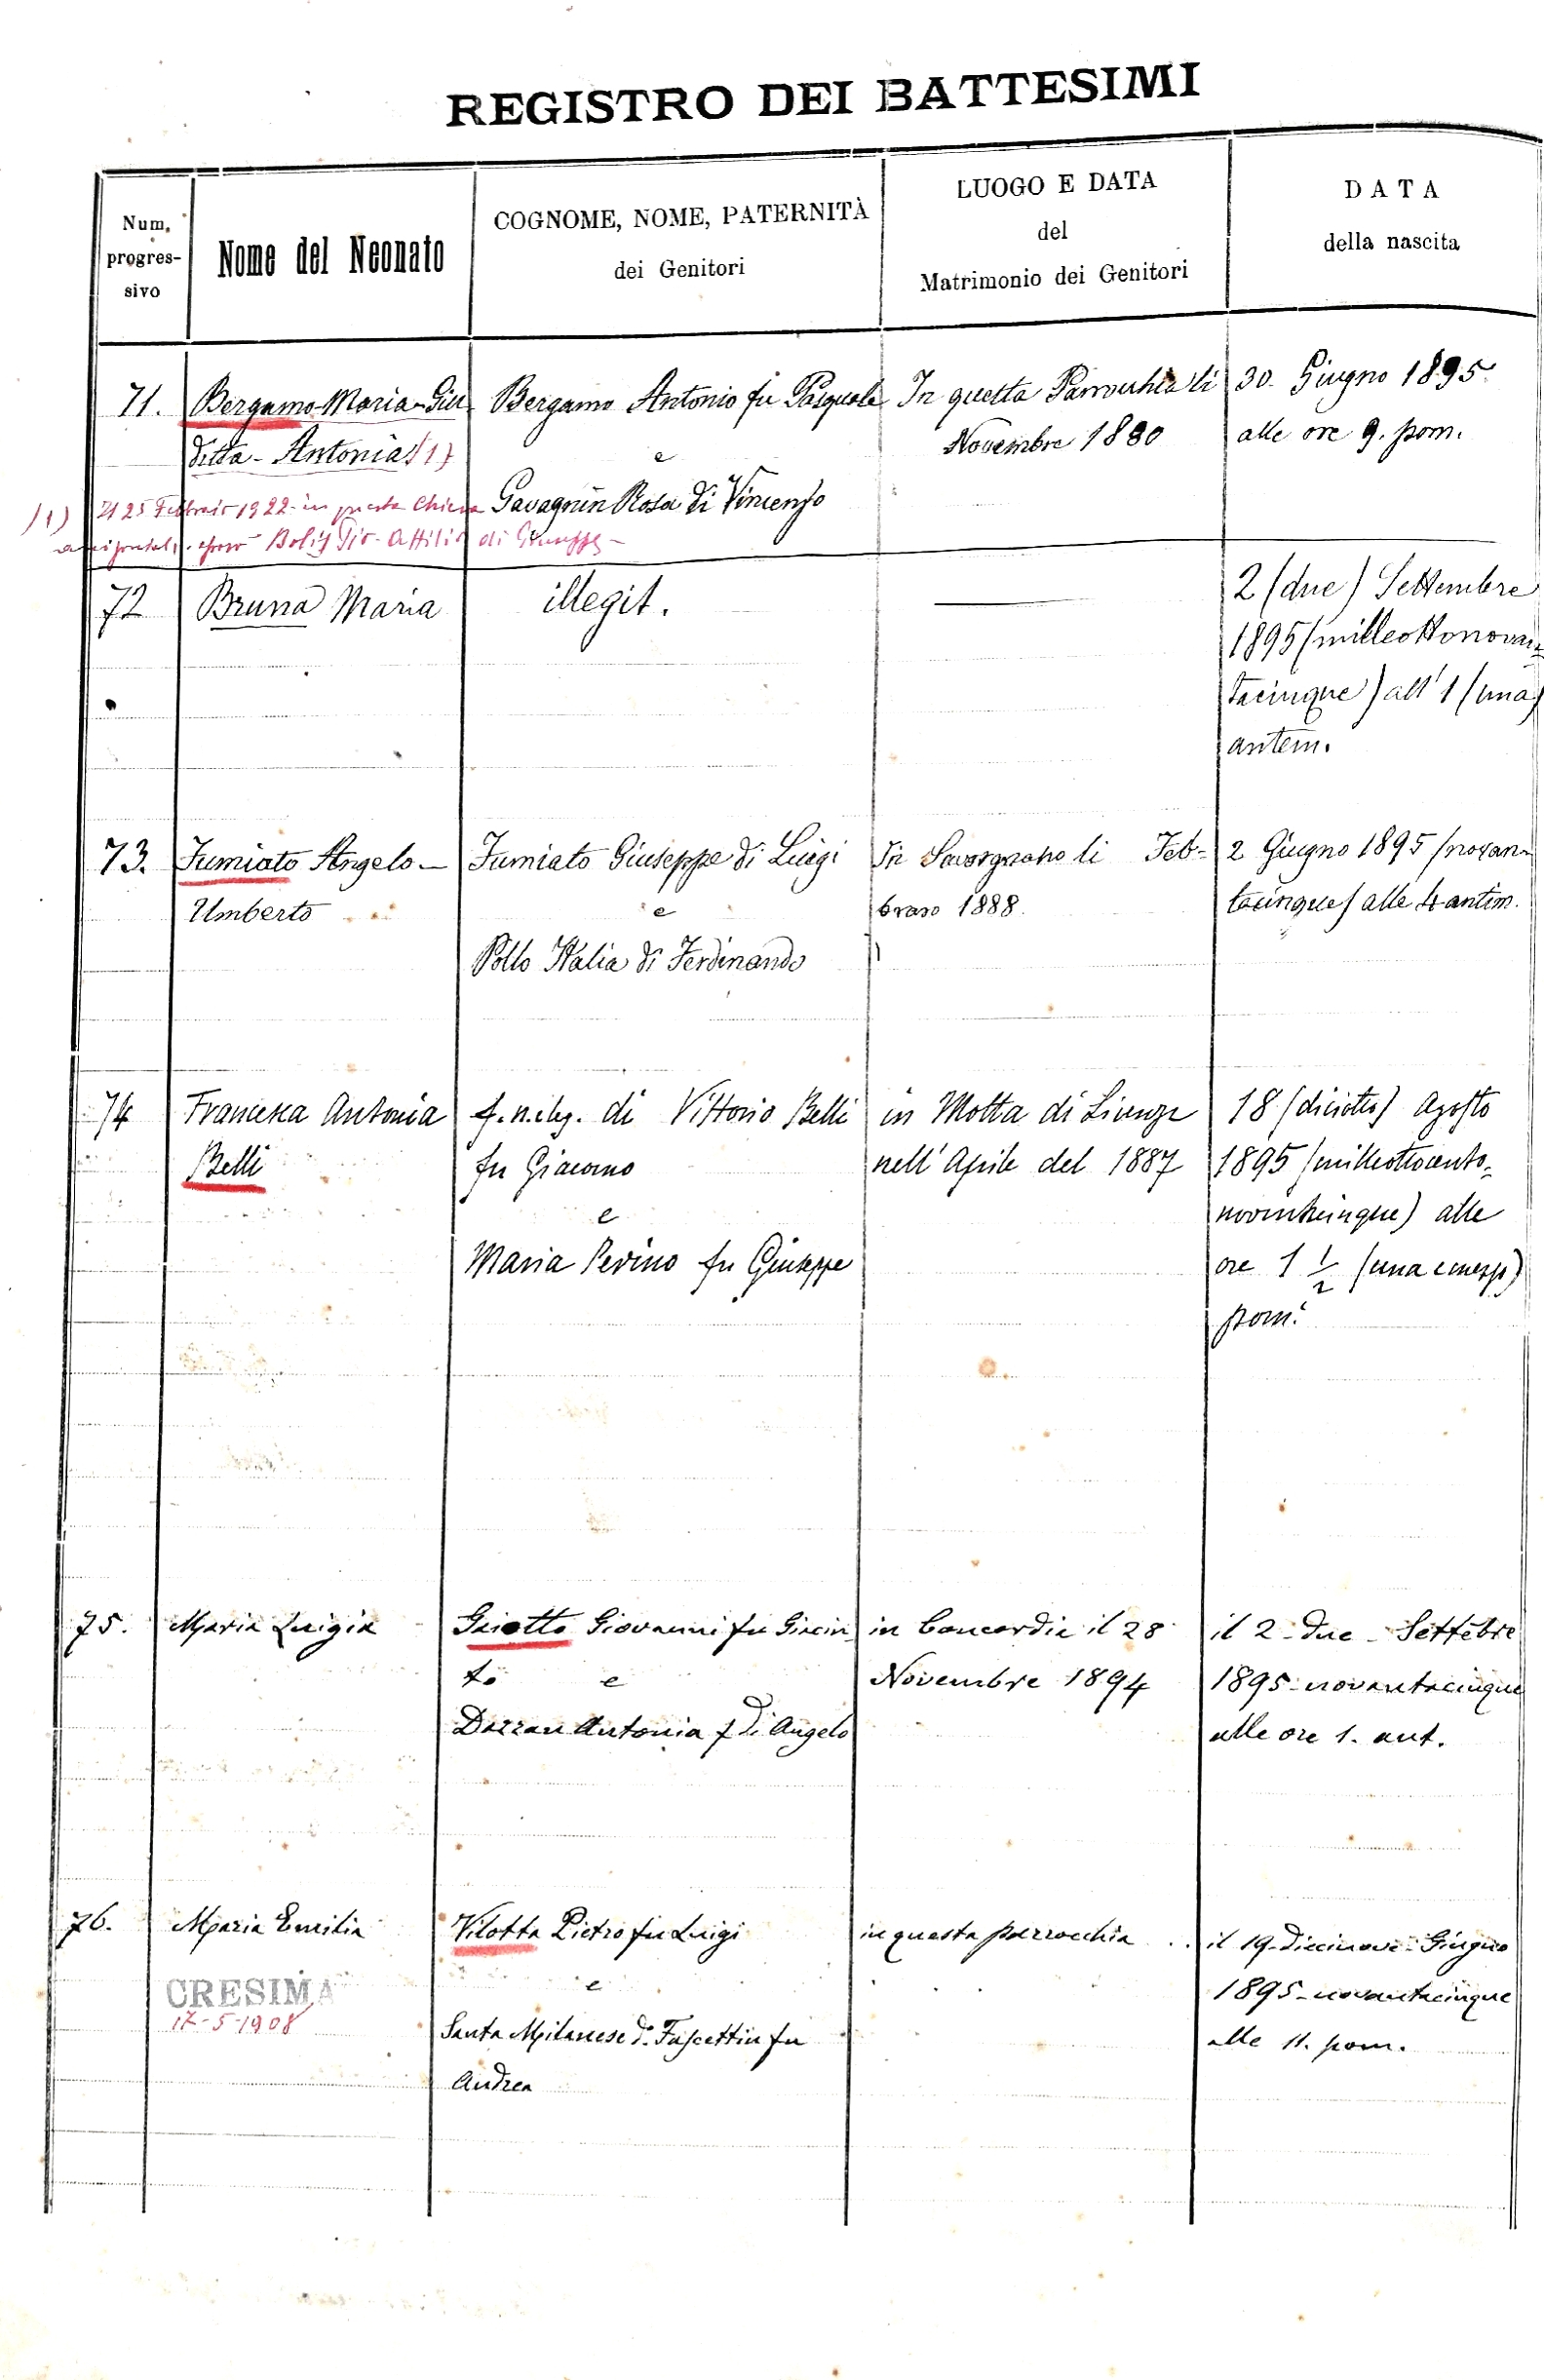 REGISTRO DEI BATTESIMI
Num.
progres-
sivo
Nome del Neonato
COGNOME, NOME, PATERNITÀ
dei Genitori
LUOGO E DATA
del
Matrimonio dei Genitori
DATA
della nascita
71.
Bergamo-Maria-Giu
ditta - Antonia (1)
Bergamo Antonio fu Pasquale
e
Gavagnin Rosa di Vincenzo
In questa Parrochia li
Novembre 1880
30 Giugno 1895.
alle ore 9. pom.
(1) Il 25 Febbraio 1922 in questa Chiesa
Attilio di Giuseppe -
72
Bruna Maria
illegit.
2 (due) Settembre
1895 (milleottonovan=
tacinque) all' 1 (una)
antem.
73.
Fumiato Angelo -
Umberto
Fumiato Giuseppe di Luigi
e
Pollo Italia di Ferdinando
In Savorgnano li Feb-
braio 1888.
2 Giugno 1895 (novan-
tacinque) alle 4 antim.
74
Francesca Antonia
Belli
f. n. leg. di Vittorio Belli
fu Giacomo
e
Maria Perino fu Giuseppe
in Motta di Livenza
nell' Aprile del 1887
18 (diciotto) Agosto
1895 (milleottocento-
novantacinque) alle
ore 1 1/2 (una e mezza)
pom.
75.
Maria Luigia
Gaiotto Giovanni fu Giacin
to e
Dazzan Antonia f di Angelo
in Concordia il 28
Novembre 1894
il 2 - due - Settebre
1895 - novantacinque
alle ore 1. ant.
76.
Maria Emilia
CRESIMA
17-5-1908
Vilotta Pietro fu Luigi
e
Santa Milanese d. Fascettin fu
Andrea
in questa parrocchia
il 19 - diecinove - Giugno
1895 - novantacinque
alle 11. pom.